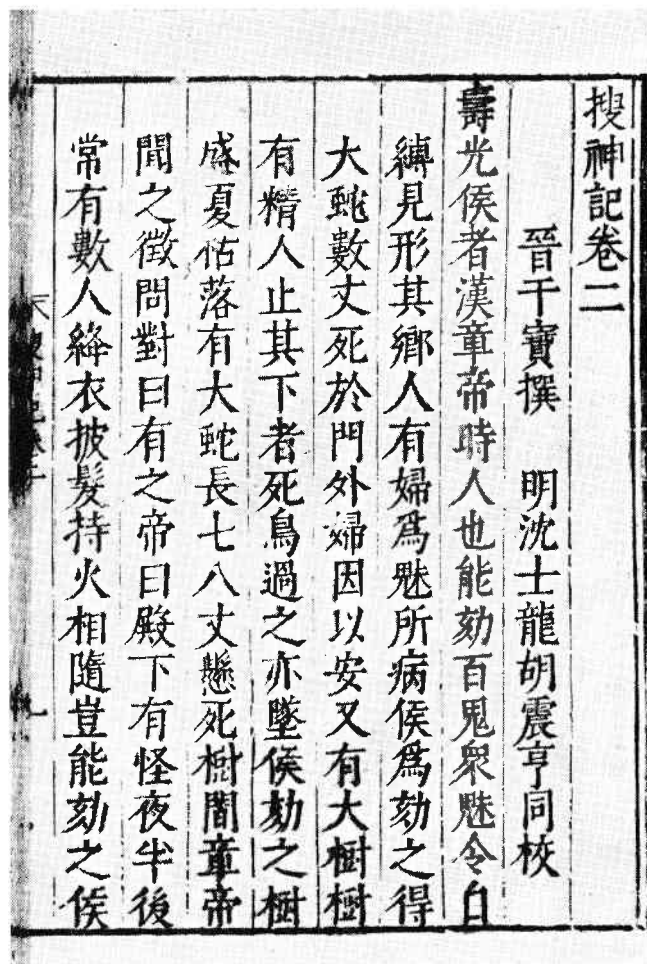 搜神記卷二
晉干寶撰　明沈士龍胡震亨同校
壽光侯者漢章帝時人也能劾百鬼衆魅令自
縛見形其鄉人有婦爲魅所病侯爲劾之得
大蛇數丈死於門外婦因以安又有大樹樹
有精人止其下者死鳥過之亦墜侯劾之樹
盛夏枯落有大蛇長七八丈懸死樹間章帝
聞之徵問對曰有之帝曰殿下有怪夜半後
常有數人絳衣披髮持火相隨豈能劾之侯